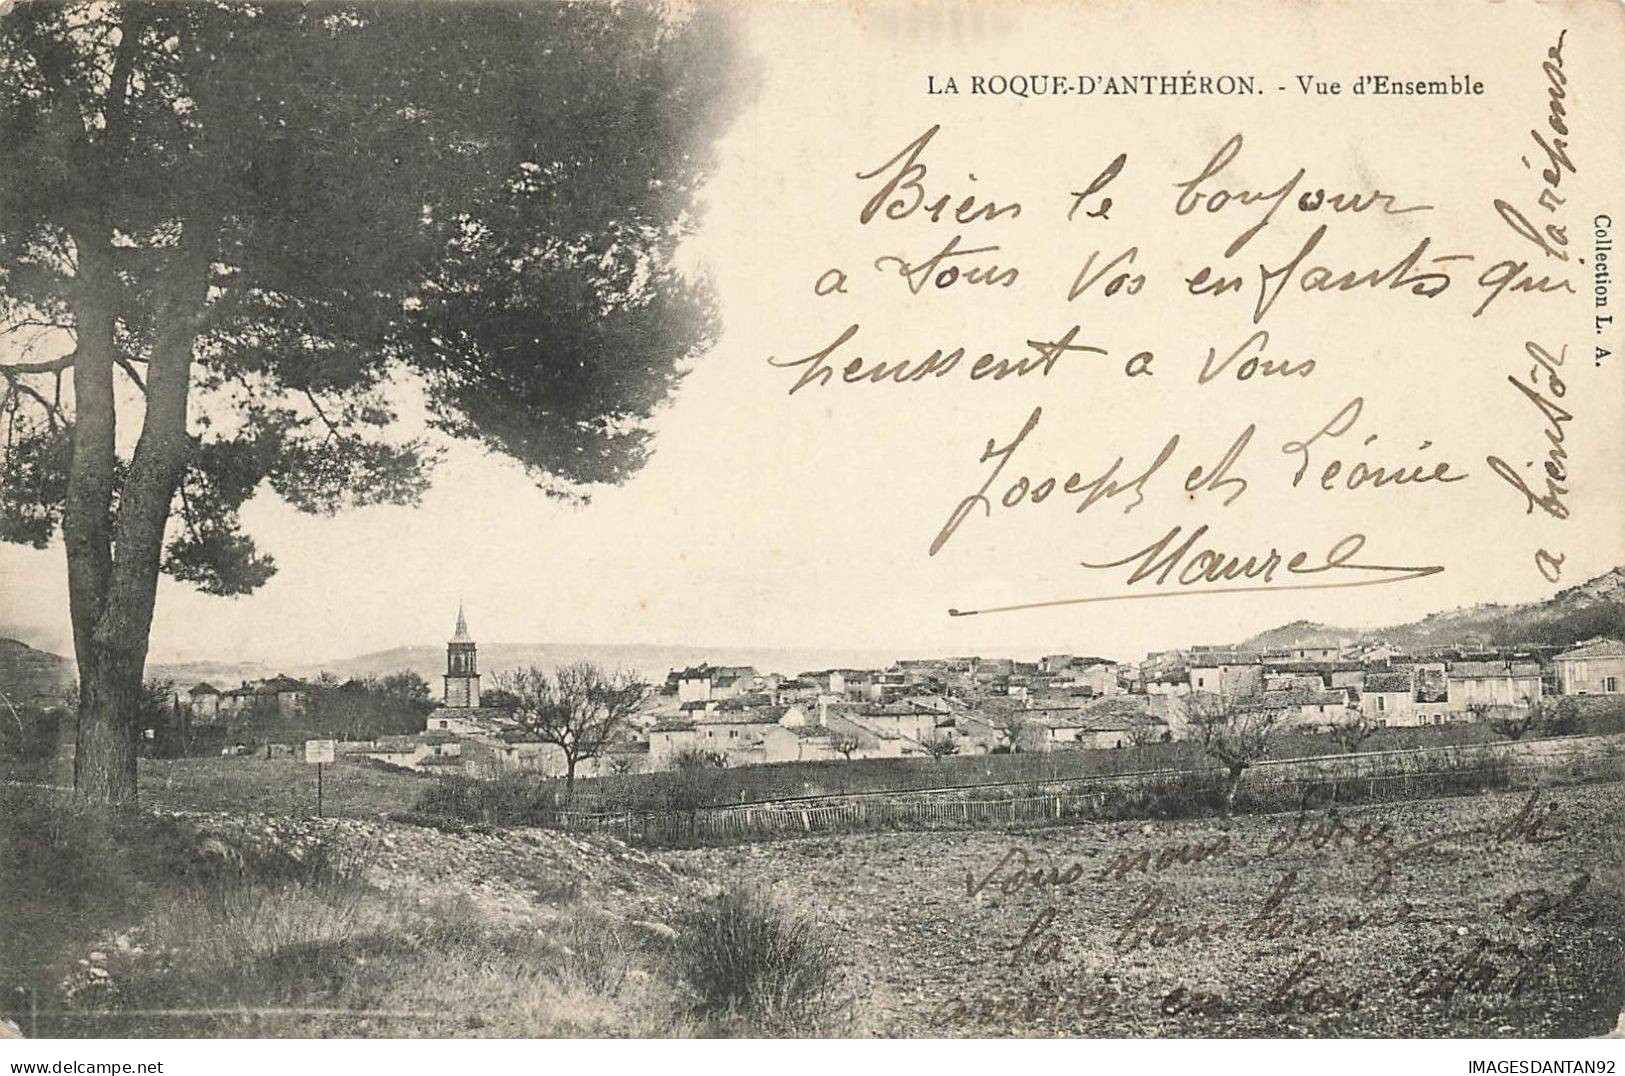 LA ROQUE-D'ANTHÉRON. - Vue d'Ensemble
Bien le bonjour
a tous Vos enfants qui
penssent a Vous
Joseph et Léonie
Maurel
a bientôt la réponsse
Collection L. A.
Vous nous direz si
la bonbonne est
arrivée en bon état
IMAGESDANTAN92